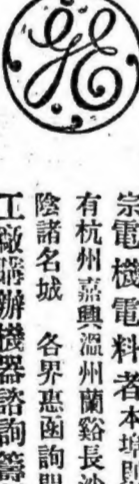 GE
宗電機電料者本埠
有杭州嘉興溫州蘭谿長沙
陰諸名城　各界惠函詢
工廠購辦機器諮詢籌